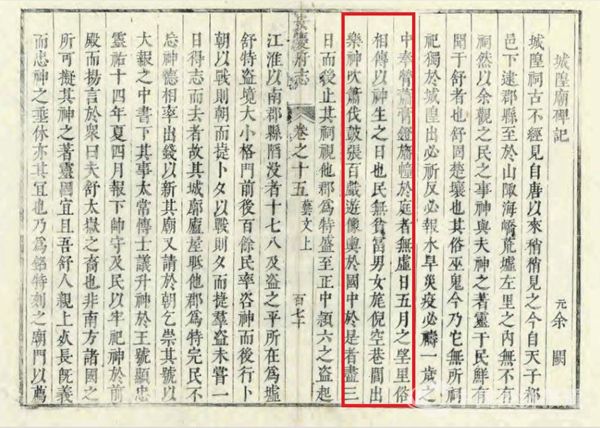 城隍廟碑記
元余闕
城隍祠古不經見自唐以來稍稍見之今自天子都
邑下逮郡縣至於山陬海嶠荒墟左里之內無不有
祠然以余觀之民之事神與夫神之著靈于民鮮有
聞于舒者也舒固楚壤也其俗巫鬼今乃它無所祠
祀獨於城隍出必祈反必報水旱災疫必禱一歲之
中奉膋蕭膏鐙旛幢於庭者無虛日五月之望里俗
相傳以神生之日也民無貧富男女旄倪空巷閭出
樂神吹簫伐鼓張百戲遊像輿於國中於是者盡三
日而後止其祠視他郡爲特盛至正中潁六之盜起
安慶府志
卷之十五
藝文上
百七十
江淮以南郡縣陷没者十七八及盜之平所在爲墟
舒特盜境大小格鬥前後百餘民率咨神而後行卜
朝以戰則朝而捷卜夕以戰則夕而捷羣盜未嘗一
日得志而去者故其城廓廬屋眂他郡爲特完民不
忘神德相率出錢以新其廟又請於朝乞崇其號以
大報之中書下其事太常博士議升神於王號顯忠
靈祐十四年夏四月報下帥守及民以牢祀神於前
殿而揚言於衆曰夫舒太嶽之裔也非南方諸國之
所可擬其神之著靈固宜且吾舒人親上死長旣義
而忠神之垂休亦其宜也乃爲銘特刻之廟門以薦